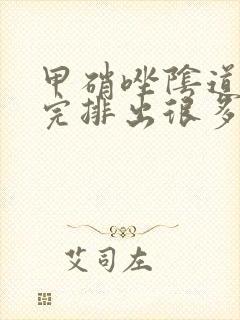 甲硝唑陰道
完排出很多
艾司左